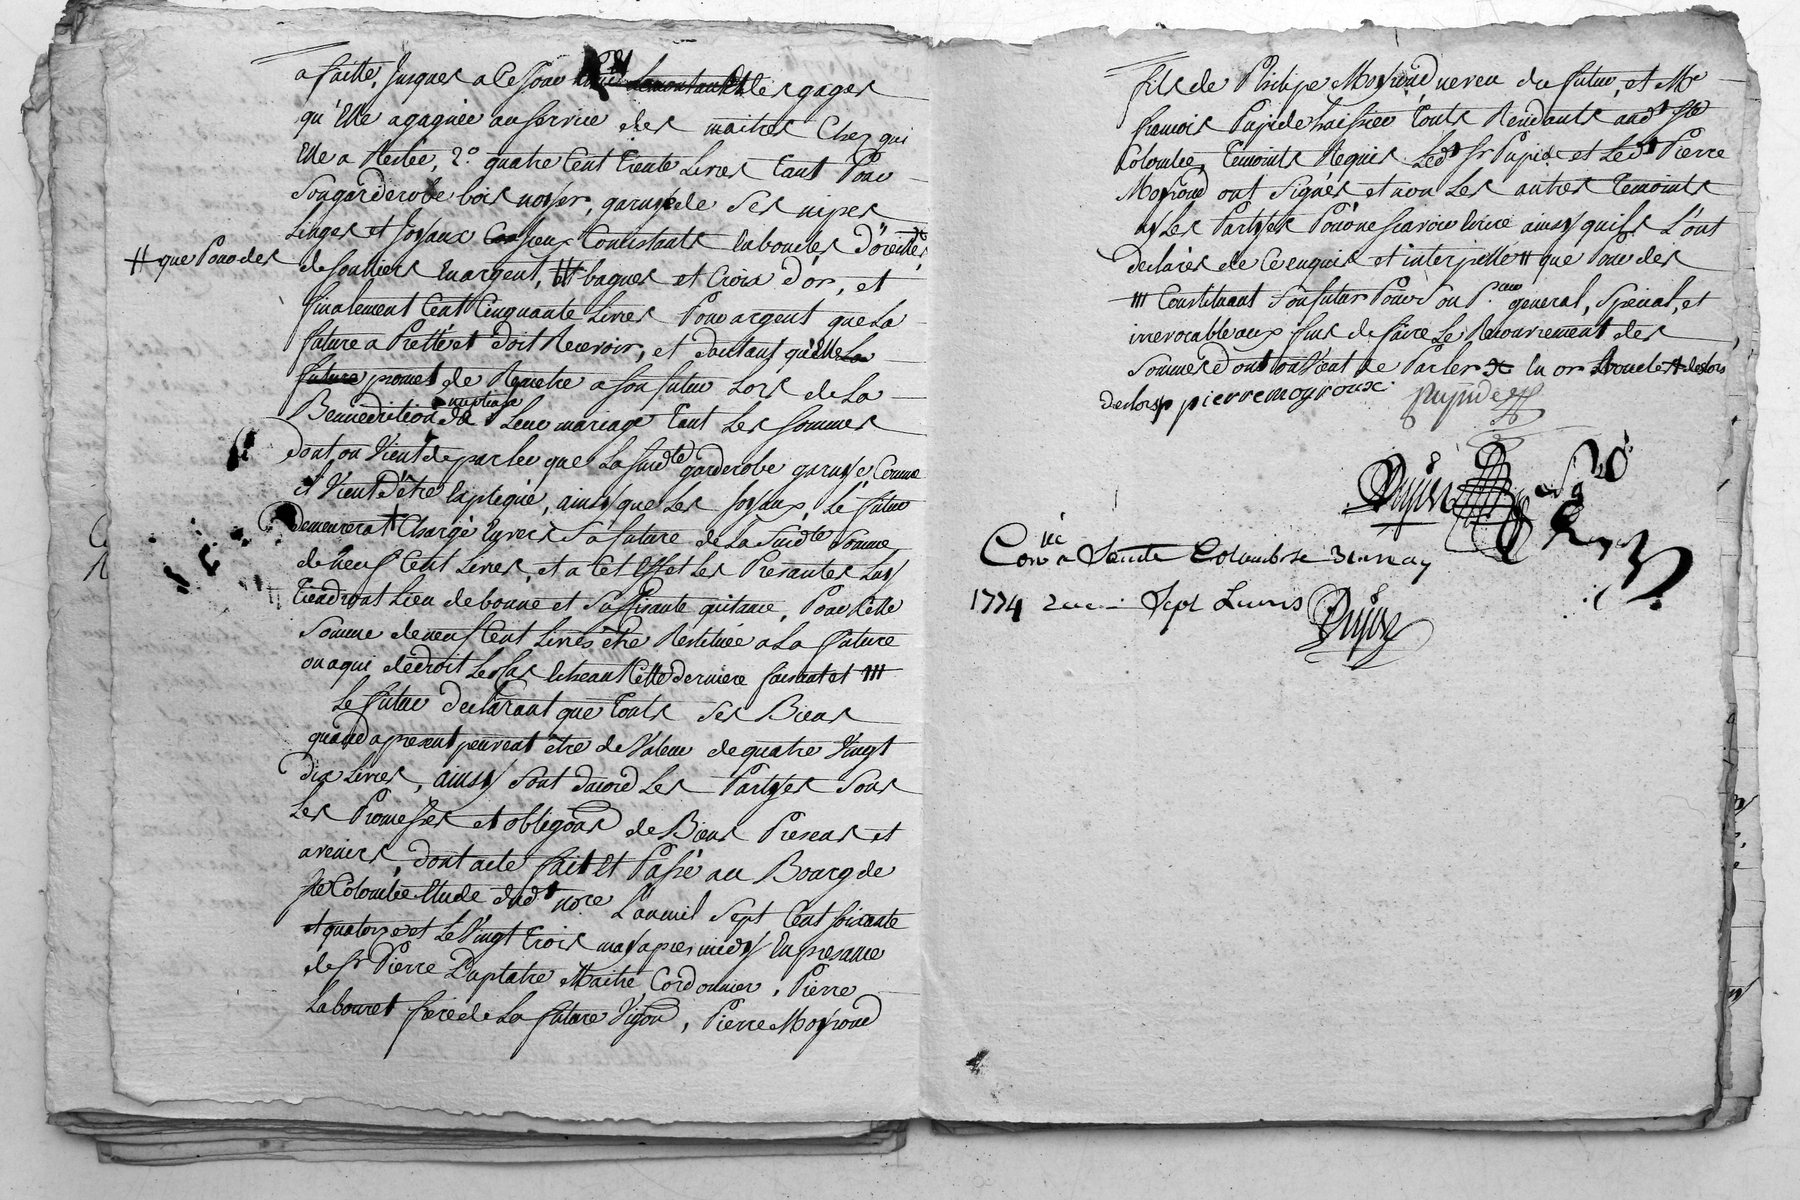 a faitte, Jusques a Ce Jour les gages
qu'Elle a gagnée au service des maitres Chez qui
Elle a Restée, 2.° quatre Cent trente Livres tant Pour
Son garderobe bois noyer, garnye de Ses nipes
Linges et Joyaux Consistants en boucles d'oreille,
# que Pour des
de souliers en argent, bagues et Croix d'or, et
finalement Cent Cinquante Livres Pour argent que La
future a Prette et doit Recevoir, et dautant qu'elle La
future promet de Remettre a son futur Lors de La
Bennediction nuptiale de Leur mariage tant Les sommes
dont on Vient de parler que La susdte garderobe garnye Comme
il Vient d'être Expliqué, ainsy que Les Joyaux, Le futur
demeurera Chargé Envers Sa future de La Susdte Somme
de neuf Cent Livres, et a Cet Effet Les Presantes Luy
tiendront Lieu de bonne et Suffisante quitance, Pour Cette
Somme de neuf Cent Livres être Restituée a La future
ou a qui de droit Le Cas Echeant Cette derniere et III
Le futur declarant que touts Ses Biens
quand a present peuvent être de Valeur de quatre Vingt
dix Livres, ainsy sont dacord Les Partyes Sous
Les Promesses et obligons de Biens Presens et
avenirs, dont acte fait et Passé au Bourg de
Ste Colombe Etude dudt nore L'an mil Sept Cent soixante
et quatorze et Le Vingt trois may apres midy En presance
de Sr Pierre Daptatre Maitre Cordonnier, Pierre
Labouret frere de La future, Pierre Moyroud
fils de Philipe Moyroud neveu du futur, et Me
francois Pupide huissier touts Rendants audt Ste
Colombe, temoints Requis Ledt Sr Pupide et Ledt Pierre
Moyroud ont Signés et non Les autres temoints
ny Les Partyes Pour ne scavoir ecrire ainsy quils L'ont
declarés de Ce enquis et interpellé # que Pour des
III Constituant Son futur Pour Son P.eur général, Spécial, et
irrevocable aux fins de faire Le Recouvrement des
Sommes dont on Vient de Parler en or
pierre moyroux. Pupide
Dujon
Con.lé a Sainte Colombe
1774 Sept Livres
Dujon